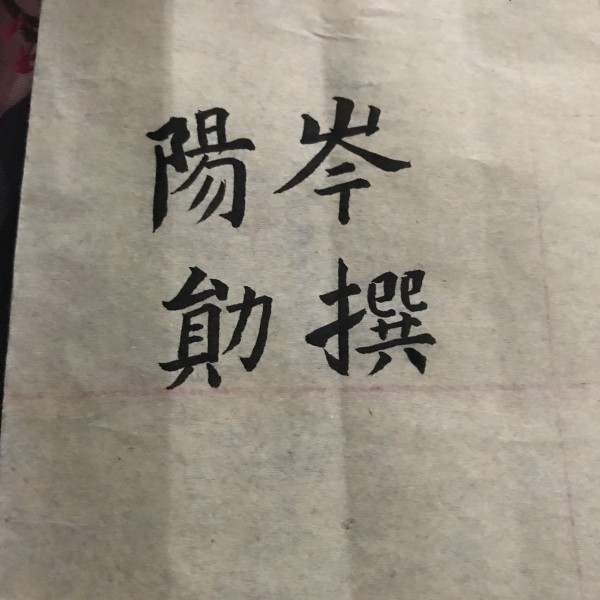 陽岑
勛撰